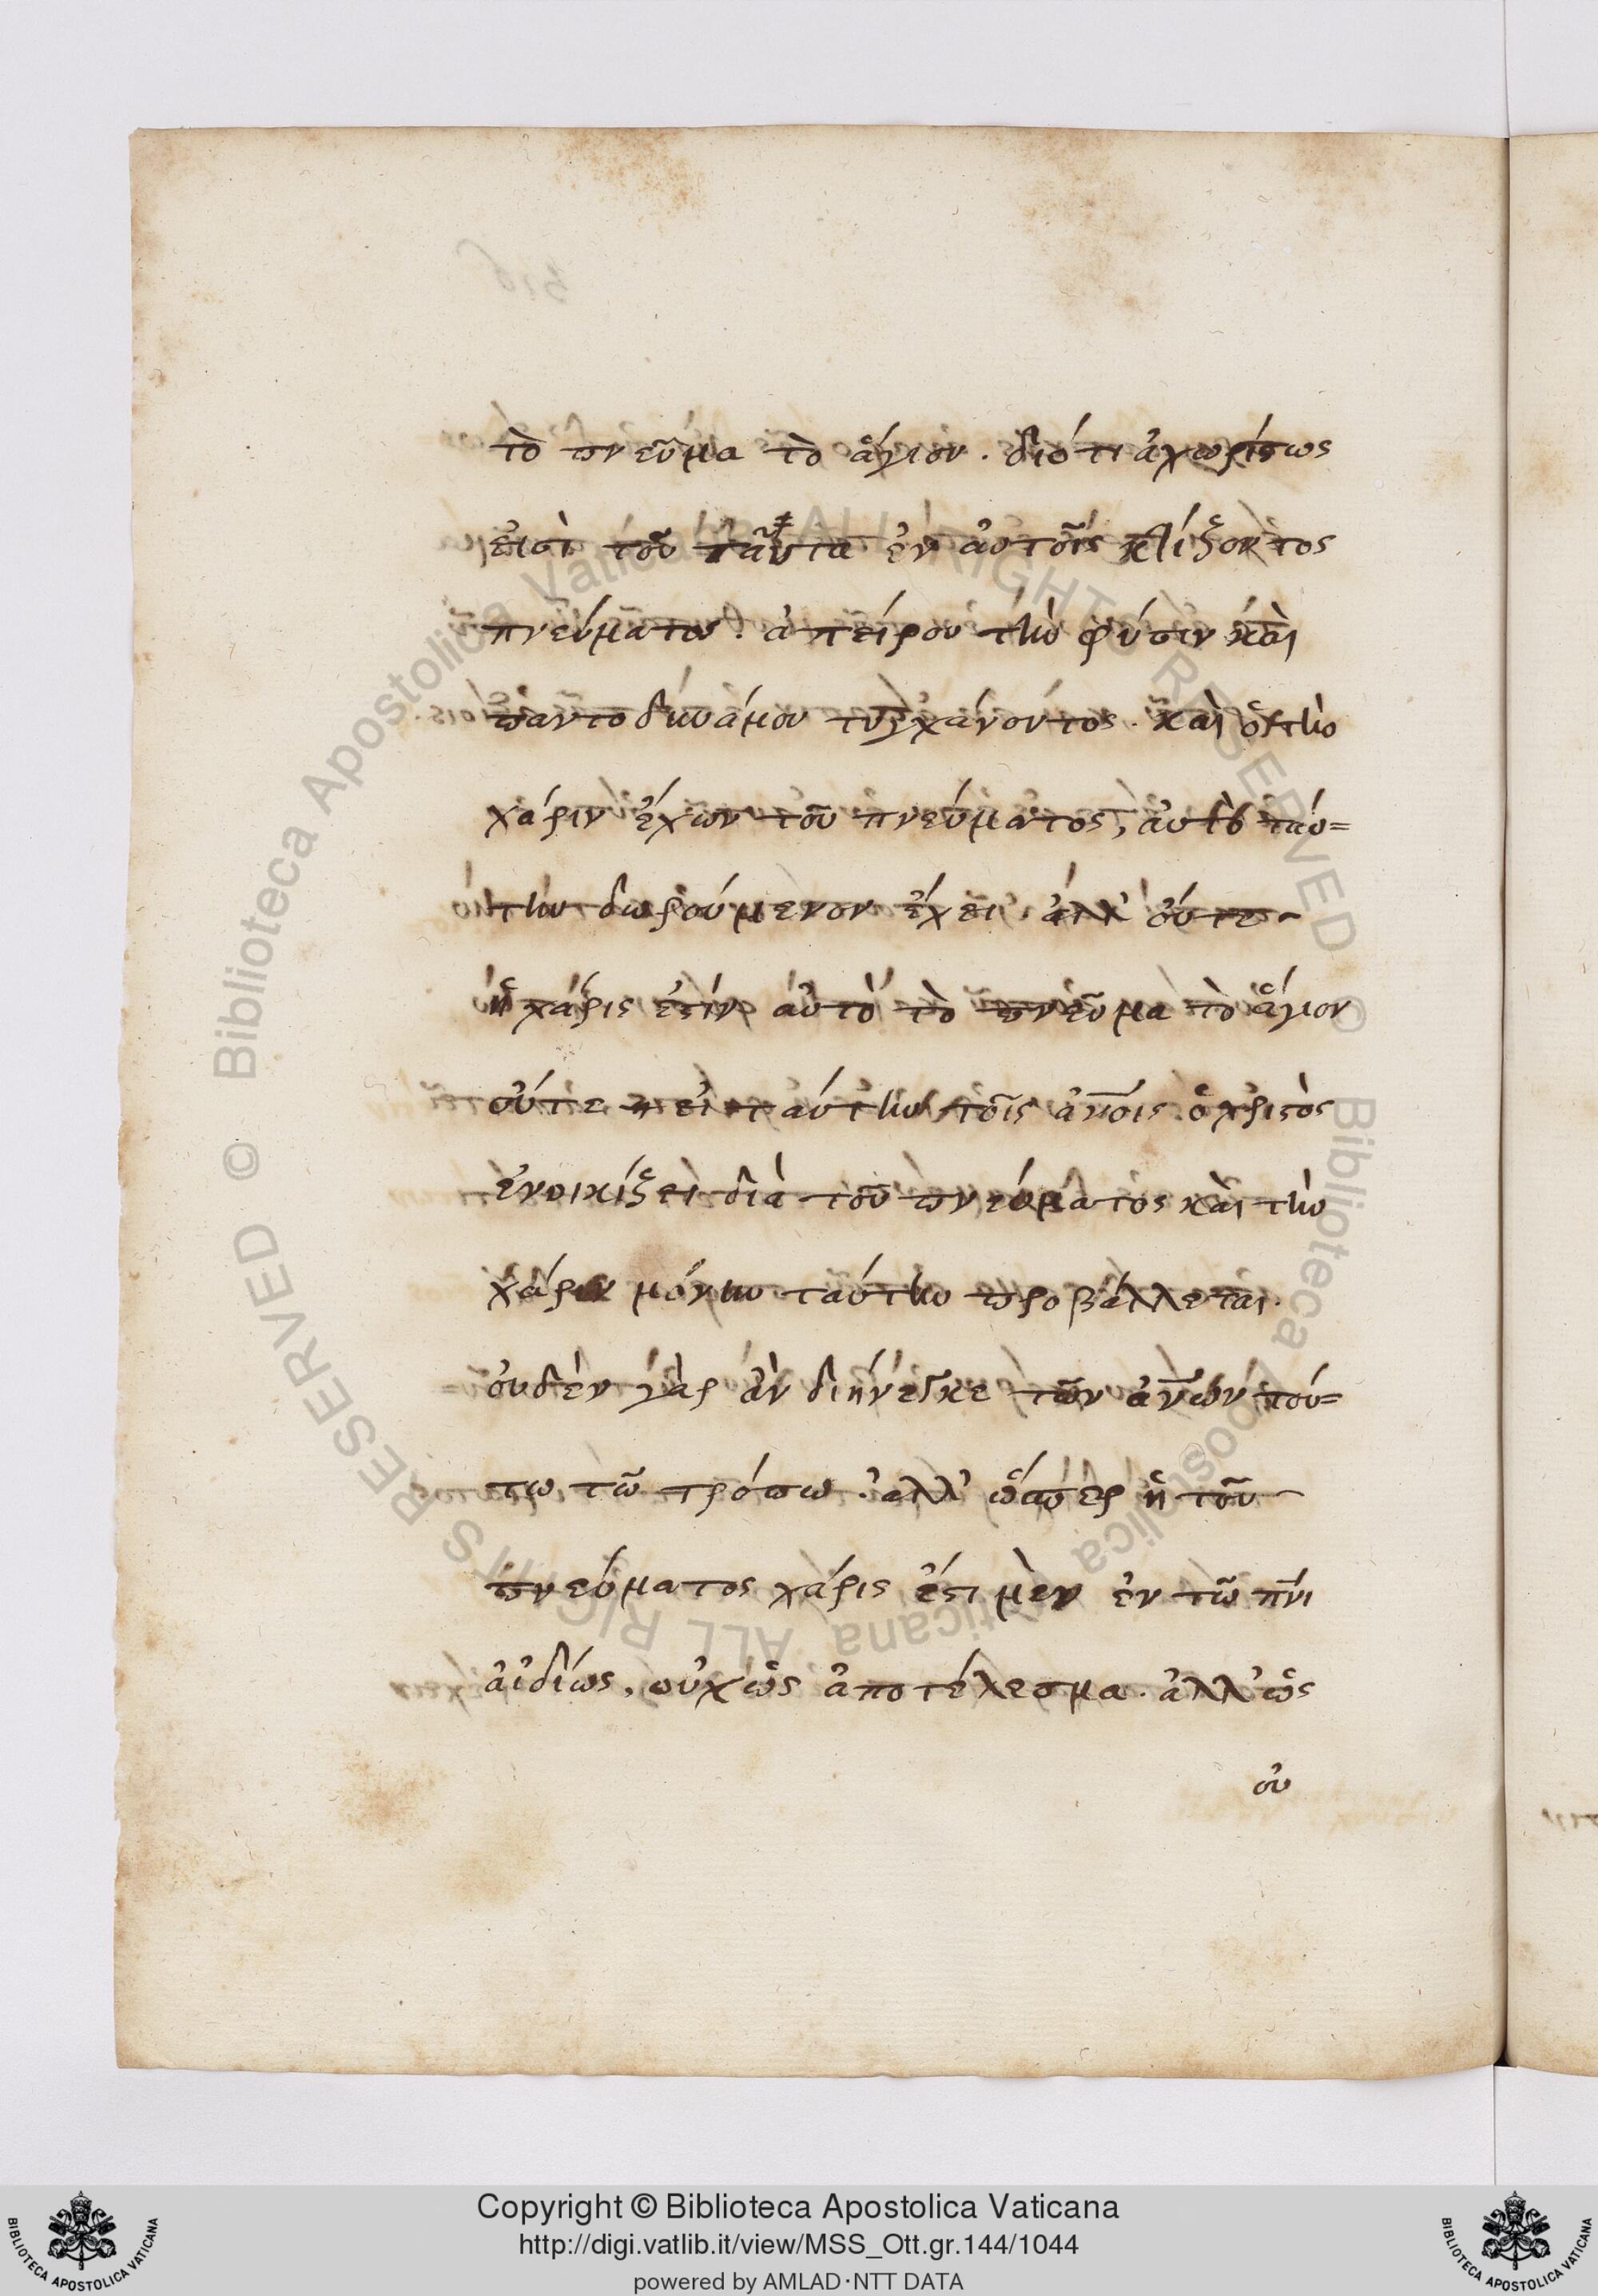 τὸ πνεῦμα τὸ ἅγιον. διότι ἀχωρίστως
εἰσὶ τοῦ ταῦτα ἐν αὐτοῖς κτίζοντος
πνεύματος. ἀπείρου τὴν φύσιν καὶ
παντοδυνάμου τυγχάνοντος. καὶ ὁ τὴν
χάριν ἔχων τοῦ πνεύματος, αὐτὸ ταύ=
την δωρούμενον ἔχει. ἀλλ' οὔτε
ἡ χάρις ἐστὶν αὐτὸ τὸ πνεῦμα τὸ ἅγιον
οὔτε εἰ ταύτην τοῖς ἀνοις ὁ χριστὸς
ἐνοικίζει διὰ τοῦ πνεύματος καὶ τὴν
χάριν μόνην ταύτην προβάλλεται.
οὐδὲν γὰρ ἂν διήνεγκε τῶν ἀνων τού=
τω τῶ τρόπω. ἀλλ' ὥσπερ ἡ τοῦ
πνεύματος χάρις ἔστι μὲν ἐν τῶ πνι
ἀϊδίως, οὐχ ὡς ἀποτέλεσμα. ἀλλ' ὡς
οὐ
Copyright © Biblioteca Apostolica Vaticana
http://digi.vatlib.it/view/MSS_Ott.gr.144/1044
powered by AMLAD·NTT DATA
BIBLIOTECA APOSTOLICA VATICANA
BIBLIOTECA APOSTOLICA VATICANA
© Biblioteca Apostolica Vaticana ALL RIGHTS RESERVED
© Biblioteca Apostolica Vaticana ALL RIGHTS RESERVED